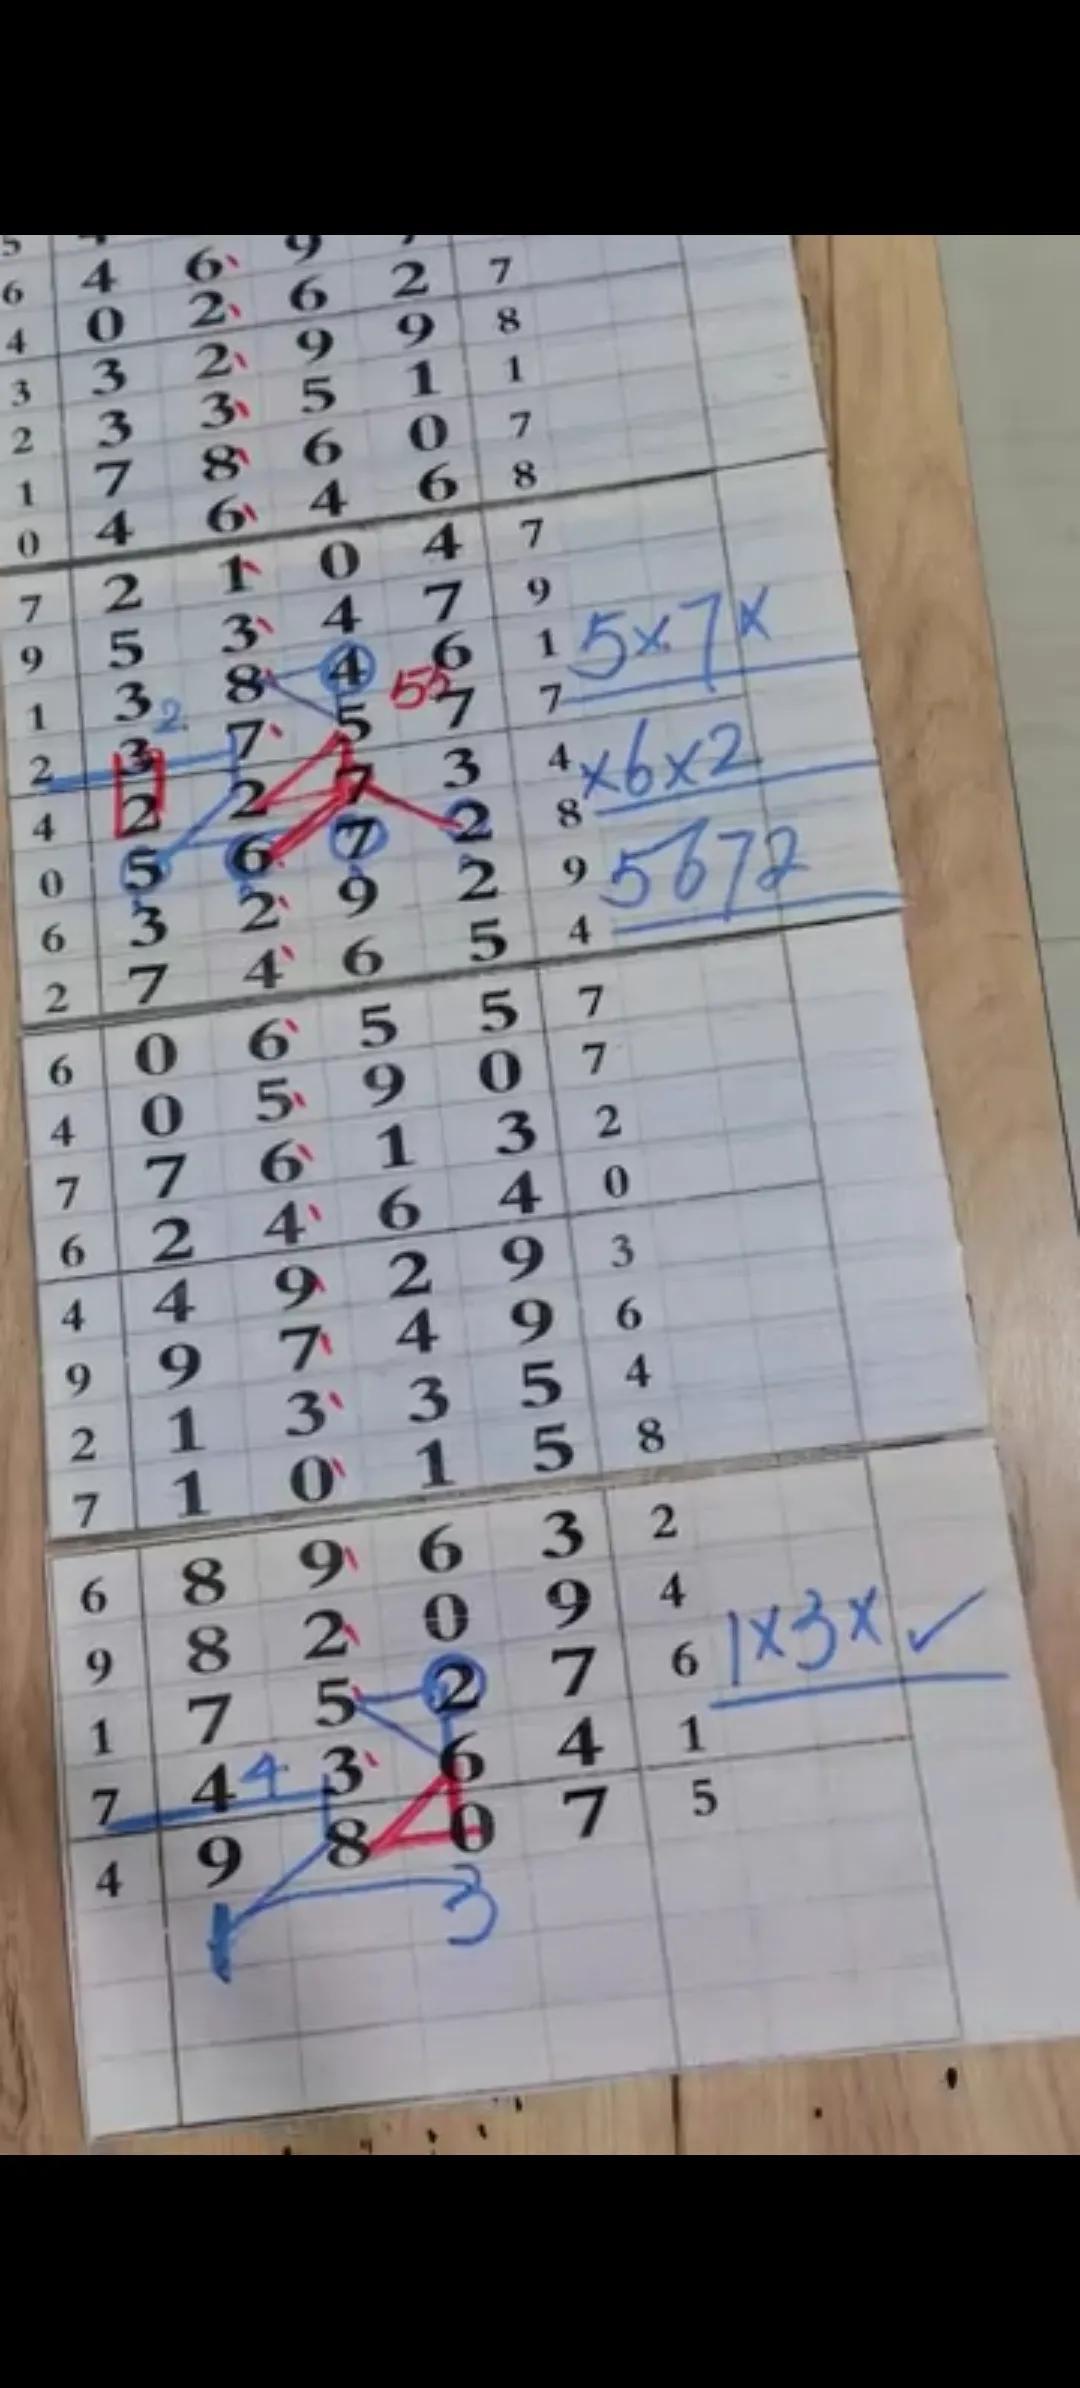 6 4 6 9
4 0 2 6 2 7
3 3 2 9 9 8
2 3 3 5 1 1
1 7 8 6 0 7
0 4 6 4 6 8
7 2 1 0 4 7
9 5 3 4 7 9
1 3 8 4 6 1 5x7x
2 3 2 7 5 52 7 7
4 2 2 7 3 4 x6x2
0 5 6 7 2 8
6 3 2 9 2 9 5672
2 7 4 6 5 4
6 0 6 5 5 7
4 0 5 9 0 7
7 7 6 1 3 2
6 2 4 6 4 0
4 4 9 2 9 3
9 9 7 4 9 6
2 1 3 3 5 4
7 1 0 1 5 8
6 8 9 6 3 2
9 8 2 0 9 4
1 7 5 2 7 6 1x3x ✓
7 4 4 3 6 4 1
4 9 8 0 7 5
1 3